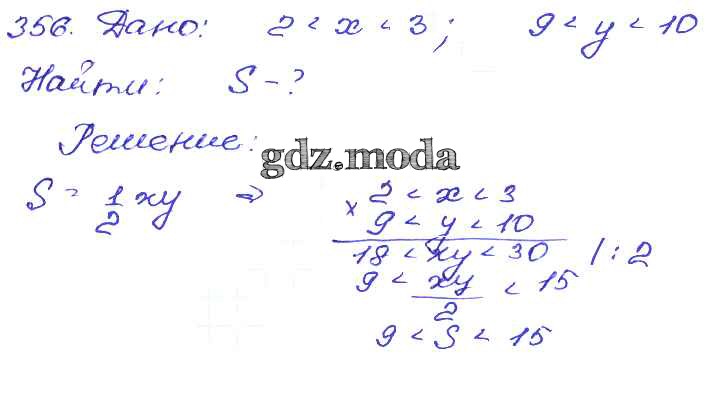 356. Дано: 2 < x < 3; 9 < y < 10
Найти: S - ?
Решение:
gdz.moda
S = 1/2 xy ⇒ 2 < x < 3
× 9 < y < 10
18 < xy < 30 / : 2
9 < xy/2 < 15
9 < S < 15